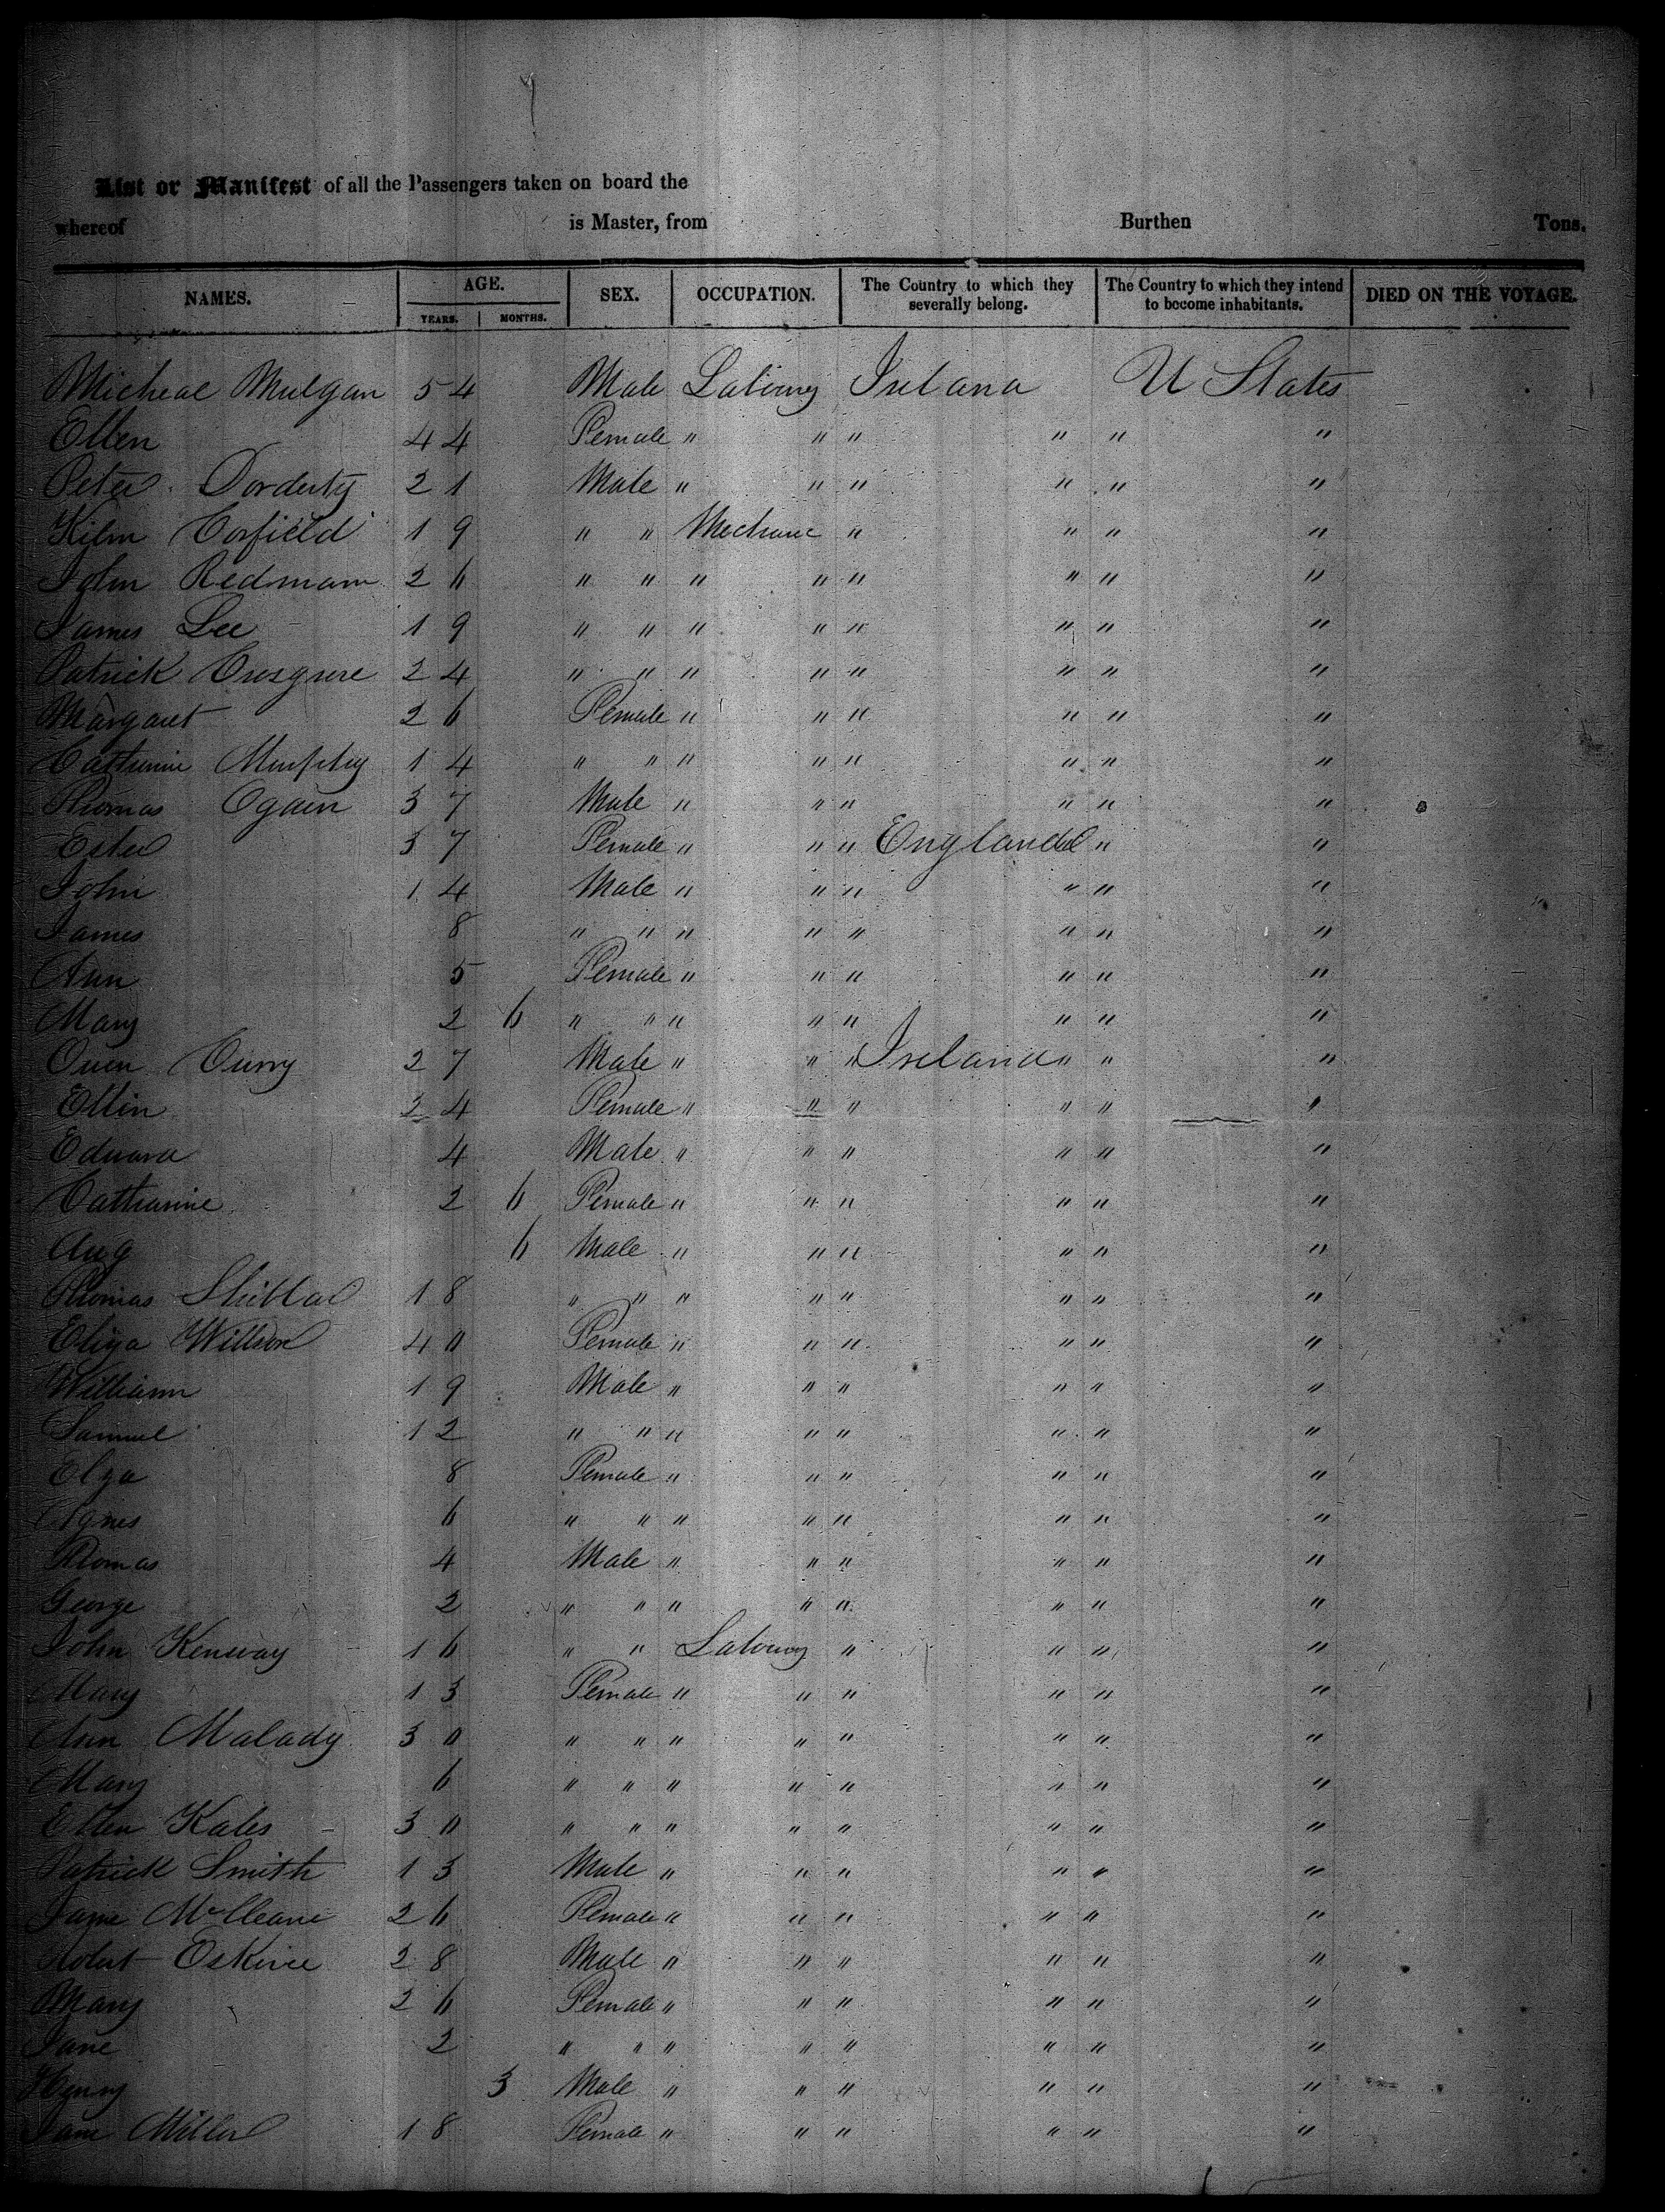 List or Manifest of all the Passengers taken on board the
whereof is Master, from Burthen Tons.
NAMES. AGE. YEARS. MONTHS. SEX. OCCUPATION. The Country to which they severally belong. The Country to which they intend to become inhabitants. DIED ON THE VOYAGE.
Micheal Mulgan 54 Male Ireland U States
Ellen 44 Female " " " " " "
Peter 21 Male " " " " " "
Corfield 19 " " Mechanic " " " "
John Redmam 26 " " " " " " " "
James Lee 19 " " " " " " " "
Patrick 24 " " " " " " " "
Margaret 26 Female " " " " " "
Catherine Murphy 14 " " " " " " " "
Thomas 37 Male " " " " " "
Ester 37 Female " " " England " "
John 14 Male " " " " " "
James 8 " " " " " " " "
Ann 5 Female " " " " " "
Mary 2 6 " " " " " " " "
Owen Curry 27 Male " " " Ireland " " "
Ellin 24 Female " " " " " "
Edward 4 Male " " " " " "
Catharine 2 6 Female " " " " " "
Aug 6 Male " " " " " "
Thomas 18 " " " " " " " "
Eliza Willson 40 Female " " " " " "
William 19 Male " " " " " "
Samuel 12 " " " " " " " "
Elza 8 Female " " " " " "
Agnes 6 " " " " " " " "
Thomas 4 Male " " " " " "
George 2 " " " " " " " "
John Kenway 16 " " " " " "
Mary 13 Female " " " " " "
Ann Malady 30 " " " " " " " "
Mary 6 " " " " " " " "
Ellen Kales 30 " " " " " " " "
Patrick Smith 13 Male " " " " " "
Jane McCleane 26 Female " " " " " "
Robert Eskine 28 Male " " " " " "
Mary 26 Female " " " " " "
Jane 2 " " " " " " " "
Henry 3 Male " " " " " "
Jane Miller 18 Female " " " " " "